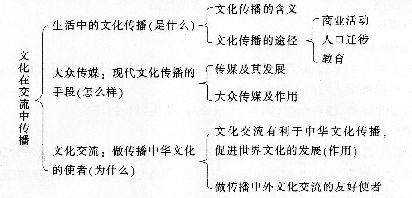 文化在交流中传播
生活中的文化传播(是什么)
文化传播的含义
文化传播的途径
商业活动
人口迁徙
教育
大众传媒：现代文化传播的
手段(怎么样)
传媒及其发展
大众传媒及作用
文化交流：做传播中华文化
的使者(为什么)
文化交流有利于中华文化传播，
促进世界文化的发展(作用)
做传播中外文化交流的友好使者